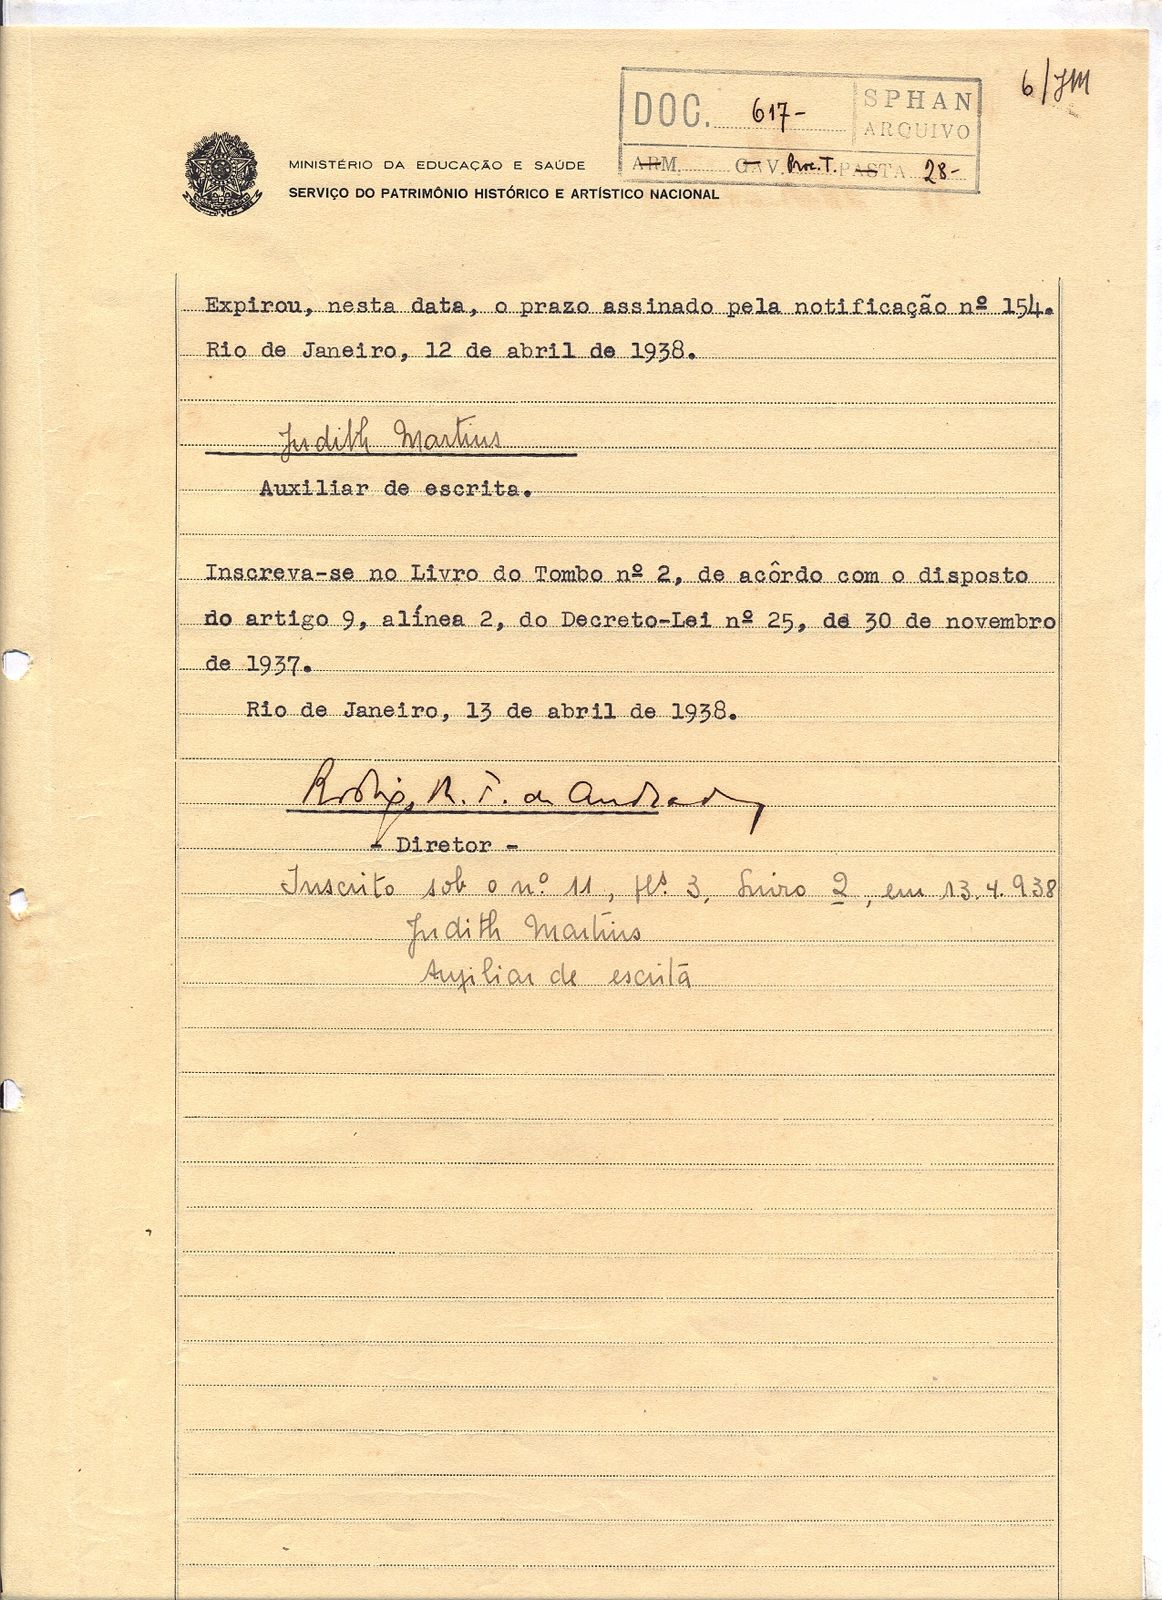 6/JM
DOC. 617- SPHAN
ARQUIVO
ARM. GAV. Proc.T. PASTA 28-
MINISTÉRIO DA EDUCAÇÃO E SAÚDE
SERVIÇO DO PATRIMÔNIO HISTÓRICO E ARTÍSTICO NACIONAL
Expirou, nesta data, o prazo assinado pela notificação nº 154.
Rio de Janeiro, 12 de abril de 1938.
Judith Martins
Auxiliar de escrita.
Inscreva-se no Livro do Tombo nº 2, de acôrdo com o disposto
no artigo 9, alínea 2, do Decreto-Lei nº 25, de 30 de novembro
de 1937.
Rio de Janeiro, 13 de abril de 1938.
Rodrigo M. F. de Andrade
- Diretor -
Inscrito sob o nº 11, fls. 3, Livro 2, em 13.4.938
Judith Martins
Auxiliar de escrita